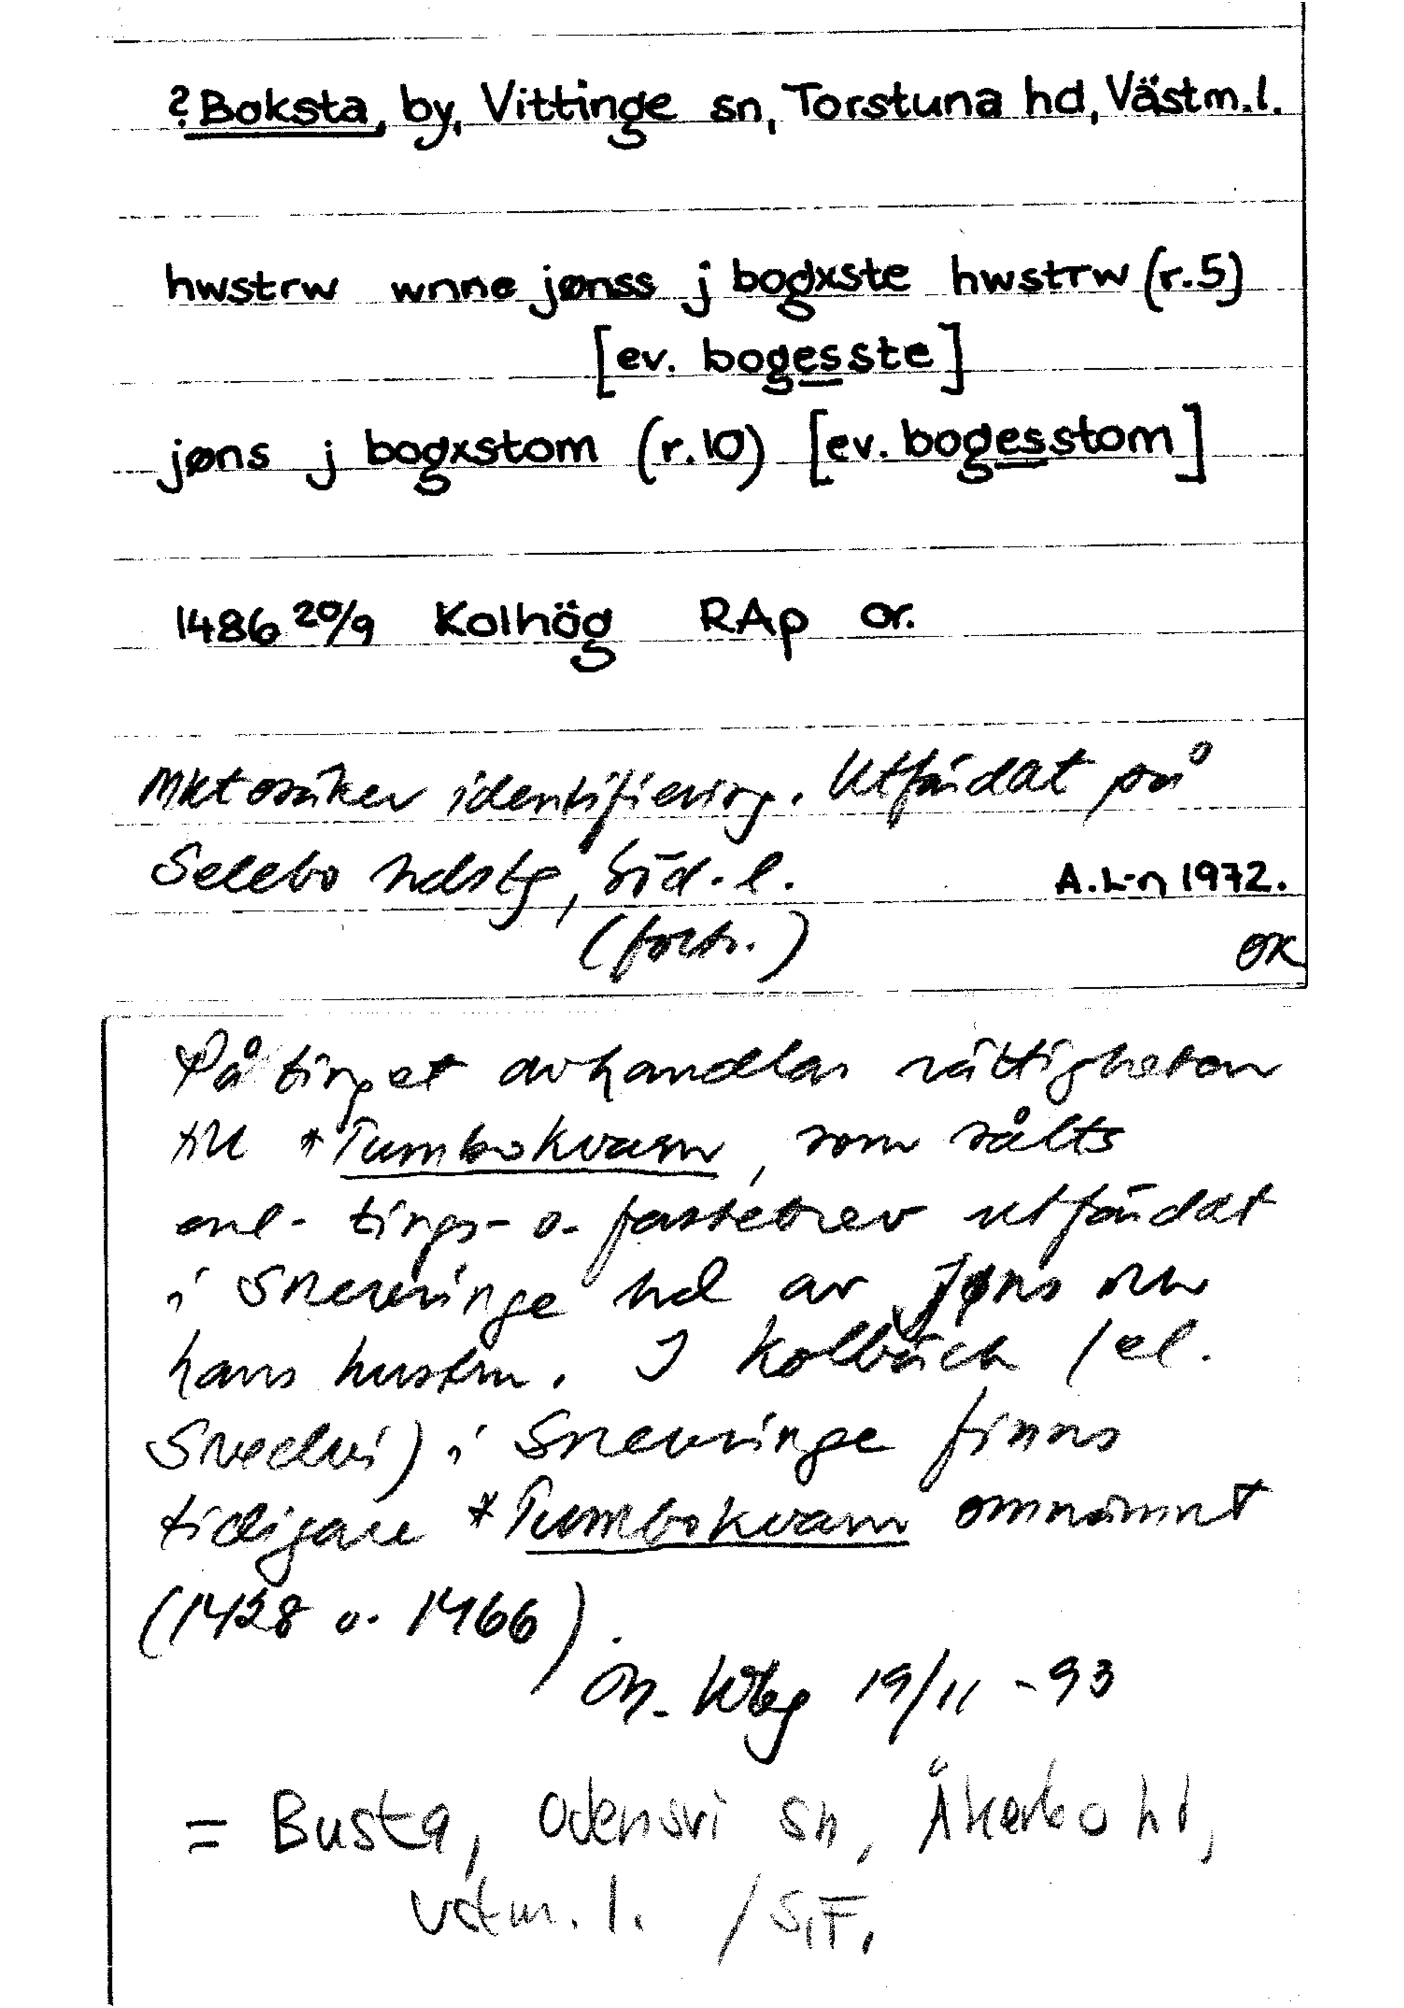 ? Boksta, by, Vittinge sn, Torstuna hd, Västm.l.
hwstrw wnne jønss j bogxste hwstrw (r.5)
[ev. bogesste]
jøns j bogxstom (r.10) [ev. bogesstom]
1486 20/9 Kolhög RAp or.
Mkt osäker identifiering. Utfärdat på
Selebo hdstg, Söd. l.
A.L-n 1972.
(forts.)
OK
På tinget avhandlas rättigheten
till *Tumbokvarn, som sålts
enl. tings- o. fastebrev utfärdat
i Snevringe hd av Jøns och
hans hustru. I Kolbäck (el.
Svedvi) i Snevringe finns
tidigare *Tumbokvarn omnämnt
(1428 o. 1466).
M. Wbg 19/11 -93
= Busta, Odensvi sn, Åkerbo hd,
Vstm. l. /S.F.